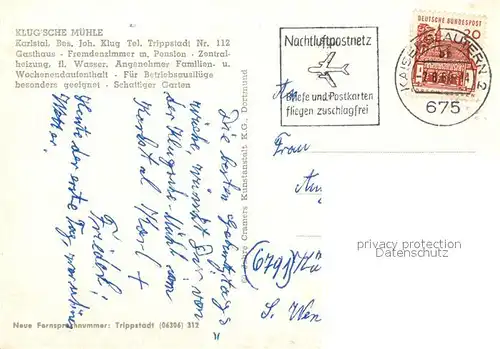 KLUG'SCHE MÜHLE
Karlstal. Bes. Joh. Klug Tel. Trippstadt Nr. 112
Gasthaus - Fremdenzimmer m. Pension - Zentral-
heizung, fl. Wasser. Angenehmer Familien- u.
Wochenendaufenthalt - Für Betriebsausflüge
besonders geeignet - Schattiger Garten
Die besten Geburtstags
wünsche, wünscht Dir von
der Klugsche-Mühl im
Karlstal Karl +
Friedel!
Heute der erste Tag,
Wetter.
Neue Fernsprechnummer: Trippstadt (06306) 312
Cramers Kunstanstalt K.G., Dortmund
Nachtluftpostnetz
Briefe und Postkarten
fliegen zuschlagfrei
DEUTSCHE BUNDESPOST
20
KAISERSLAUTERN 2
675
An
Frau
(6791)
S. Wen
privacy protection
Datenschutz